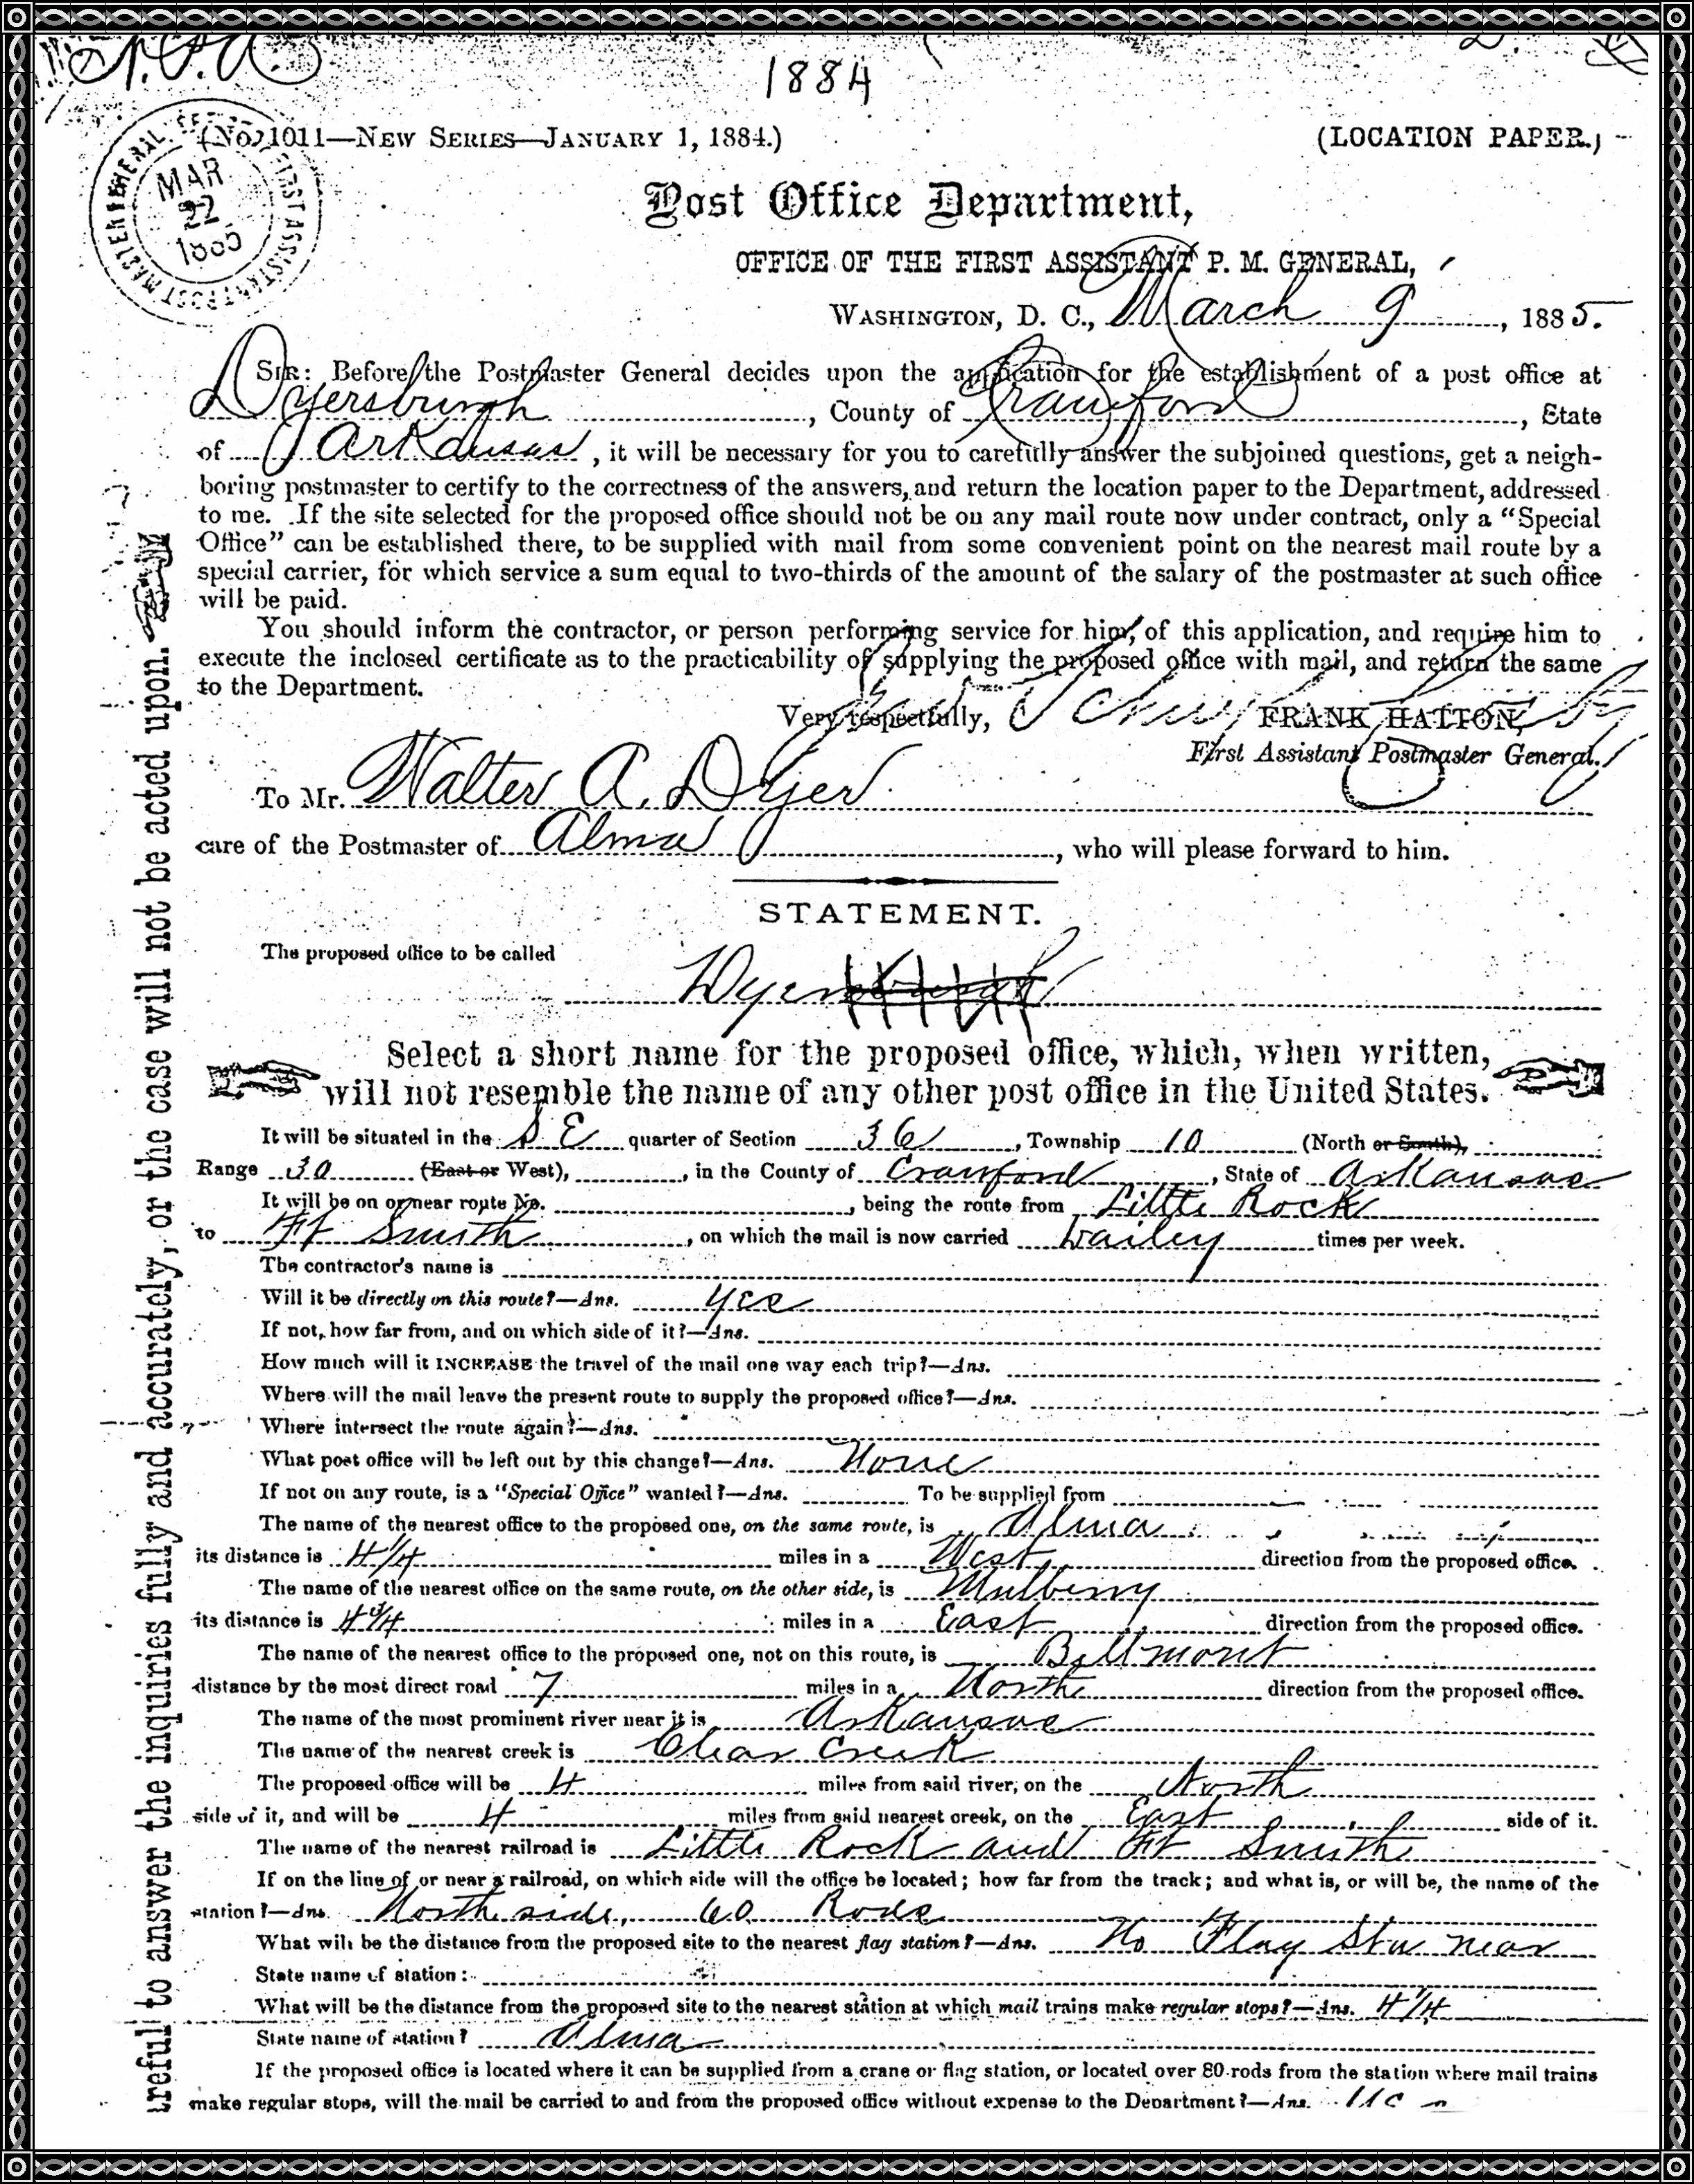 1884
(No. 1011—NEW SERIES—JANUARY 1, 1884.) (LOCATION PAPER.)
MAR
22
1885
Post Office Department,
OFFICE OF THE FIRST ASSISTANT P. M. GENERAL,
WASHINGTON, D. C., March 9, 1885.
SIR: Before the Postmaster General decides upon the application for the establishment of a post office at
Dyersburgh, County of Crawford, State
of Arkansas, it will be necessary for you to carefully answer the subjoined questions, get a neigh-
boring postmaster to certify to the correctness of the answers, and return the location paper to the Department, addressed
to me. If the site selected for the proposed office should not be on any mail route now under contract, only a “Special
Office” can be established there, to be supplied with mail from some convenient point on the nearest mail route by a
special carrier, for which service a sum equal to two-thirds of the amount of the salary of the postmaster at such office
will be paid.
You should inform the contractor, or person performing service for him, of this application, and require him to
execute the inclosed certificate as to the practicability of supplying the proposed office with mail, and return the same
to the Department.
Very respectfully, FRANK HATTON,
First Assistant Postmaster General.
To Mr. Walter A. Dyer
care of the Postmaster of Alma, who will please forward to him.
STATEMENT.
The proposed office to be called
Dyersburgh
Select a short name for the proposed office, which, when written,
will not resemble the name of any other post office in the United States.
It will be situated in the S E quarter of Section 36, Township 10 (North or South),
Range 30 (East or West), in the County of Crawford, State of Arkansas
It will be on or near route No. , being the route from Little Rock
to Ft Smith, on which the mail is now carried Dailey times per week.
The contractor's name is
Will it be directly on this route?—Ans. yes
If not, how far from, and on which side of it?—Ans.
How much will it INCREASE the travel of the mail one way each trip?—Ans.
Where will the mail leave the present route to supply the proposed office?—Ans.
Where intersect the route again?—Ans.
What post office will be left out by this change?—Ans. None
If not on any route, is a “Special Office” wanted?—Ans. To be supplied from
The name of the nearest office to the proposed one, on the same route, is Alma
its distance is 4 1/4 miles in a West direction from the proposed office.
The name of the nearest office on the same route, on the other side, is Mulberry
its distance is 4 3/4 miles in a East direction from the proposed office.
The name of the nearest office to the proposed one, not on this route, is Bellmont
distance by the most direct road 7 miles in a North direction from the proposed office.
The name of the most prominent river near it is Arkansas
The name of the nearest creek is Clear Creek
The proposed office will be 4 miles from said river, on the North
side of it, and will be 4 miles from said nearest creek, on the East side of it.
The name of the nearest railroad is Little Rock and Ft Smith
If on the line of or near a railroad, on which side will the office be located; how far from the track; and what is, or will be, the name of the
station?—Ans. North side, 60 Rods
What will be the distance from the proposed site to the nearest flag station?—Ans. No Flag Sta near
State name of station:
What will be the distance from the proposed site to the nearest station at which mail trains make regular stops?—Ans. 4 1/4
State name of station? Alma
If the proposed office is located where it can be supplied from a crane or flag station, or located over 80 rods from the station where mail trains
make regular stops, will the mail be carried to and from the proposed office without expense to the Department?—Ans.
to answer the inquiries fully and accurately, or the case will not be acted upon.